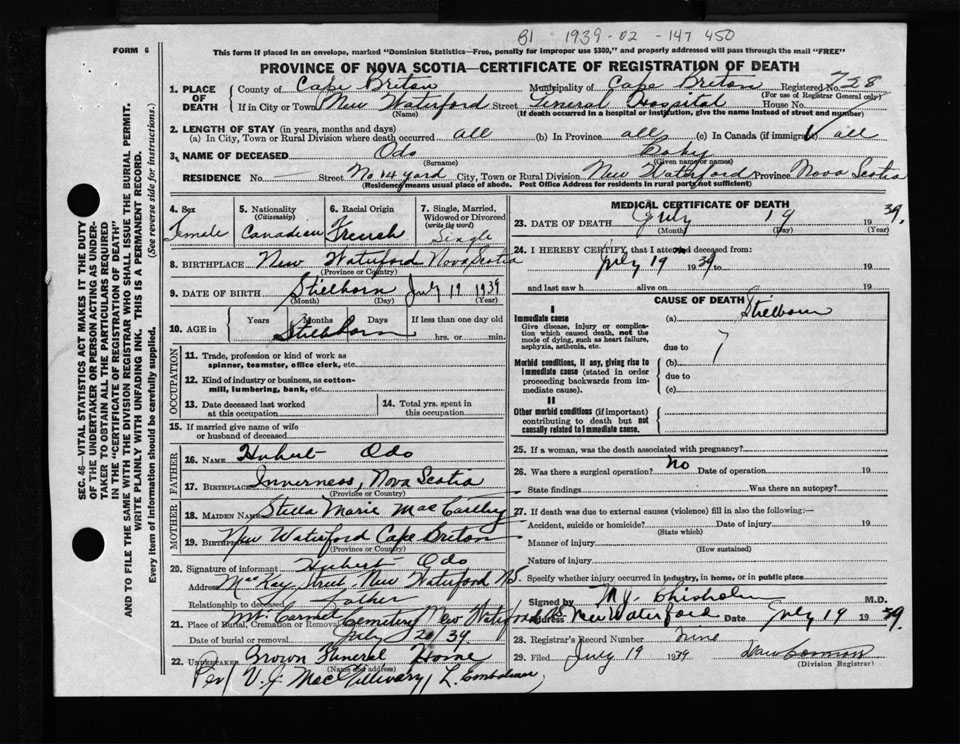 81 - 1939 - 02 - 147 450
FORM 6
This form if placed in an envelope, marked "Dominion Statistics—Free, penalty for improper use $300," and properly addressed will pass through the mail "FREE"
PROVINCE OF NOVA SCOTIA—CERTIFICATE OF REGISTRATION OF DEATH
1. PLACE OF DEATH County of Cape Briton Municipality of Cape Briton Registered No. 728
(For use of Registrar General only)
If in City or Town New Waterford Street General Hospital House No.
(Name) (If death occurred in a hospital or institution, give the name instead of street and number)
2. LENGTH OF STAY (in years, months and days)
(a) In City, Town or Rural Division where death occurred all (b) In Province all (c) In Canada (if immigrant) all
3. NAME OF DECEASED Odo Baby
(Surname) (Given name or names)
RESIDENCE No. — Street No 14 yard City, Town or Rural Division New Waterford Province Nova Scotia
(Residence means usual place of abode. Post Office Address for residents in rural parts not sufficient)
4. Sex
Female
5. Nationality
(Citizenship)
Canadian
6. Racial Origin
French
7. Single, Married, Widowed or Divorced
(write the word)
Single
8. BIRTHPLACE New Waterford Nova Scotia
(Province or Country)
9. DATE OF BIRTH Stielborn July 19 1939
(Month) (Day) (Year)
10. AGE in Years Months Days If less than one day old
Stielborn hrs. or min.
OCCUPATION
11. Trade, profession or kind of work as spinner, teamster, office clerk, etc.
12. Kind of industry or business, as cotton-mill, lumbering, bank, etc.
13. Date deceased last worked at this occupation
14. Total yrs. spent in this occupation
15. If married give name of wife or husband of deceased
FATHER
16. NAME Hubert Odo
17. BIRTHPLACE Inverness, Nova Scotia
(Province or Country)
MOTHER
18. MAIDEN NAME Stella Marie
19. BIRTHPLACE New Waterford Cape Briton
(Province or Country)
20. Signature of informant Hubert Odo
Address MacKay Street, New Waterford NS.
Relationship to deceased Father
21. Place of Burial, Cremation or Removal Mt. Carmel Cemetery New Waterford NS
Date of burial or removal July 20/39
22. UNDERTAKER Brown Funeral Home
(Name and address)
Per/ V. J. MacGillivary /
MEDICAL CERTIFICATE OF DEATH
23. DATE OF DEATH July 19 1939.
(Month) (Day) (Year)
24. I HEREBY CERTIFY, that I attended deceased from:
July 19 1939 to 19
and last saw h alive on 19
CAUSE OF DEATH
I
Immediate cause
Give disease, injury or complication which caused death, not the mode of dying, such as heart failure, asphyxia, asthenia, etc.
(a) Stielborn
due to ?
Morbid conditions, if any, giving rise to immediate cause (stated in order proceeding backwards from immediate cause).
(b)
due to
(c)
II
Other morbid conditions (if important) contributing to death but not causally related to immediate cause.
25. If a woman, was the death associated with pregnancy?
26. Was there a surgical operation? No Date of operation 19
State findings Was there an autopsy?
27. If death was due to external causes (violence) fill in also the following:—
Accident, suicide or homicide? Date of injury 19
(State which)
Manner of injury
(How sustained)
Nature of injury
Specify whether injury occurred in industry, in home, or in public place
Signed by M.J. Chisholm M.D.
Address New Waterford Date July 19 1939.
28. Registrar's Record Number Nine
29. Filed July 19 1939
(Division Registrar)
SEC. 46—VITAL STATISTICS ACT MAKES IT THE DUTY
OF THE UNDERTAKER OR PERSON ACTING AS UNDER-
TAKER TO OSTAIN ALL THE PARTICULARS REQUIRED
IN THE "CERTIFICATE OF REGISTRATION OF DEATH"
AND TO FILE THE SAME WITH THE DIVISION REGISTRAR WHO SHALL ISSUE THE BURIAL PERMIT.
WRITE PLAINLY WITH UNFADING INK. THIS IS A PERMANENT RECORD.
Every item of information should be carefully supplied. (See reverse side for instructions.)